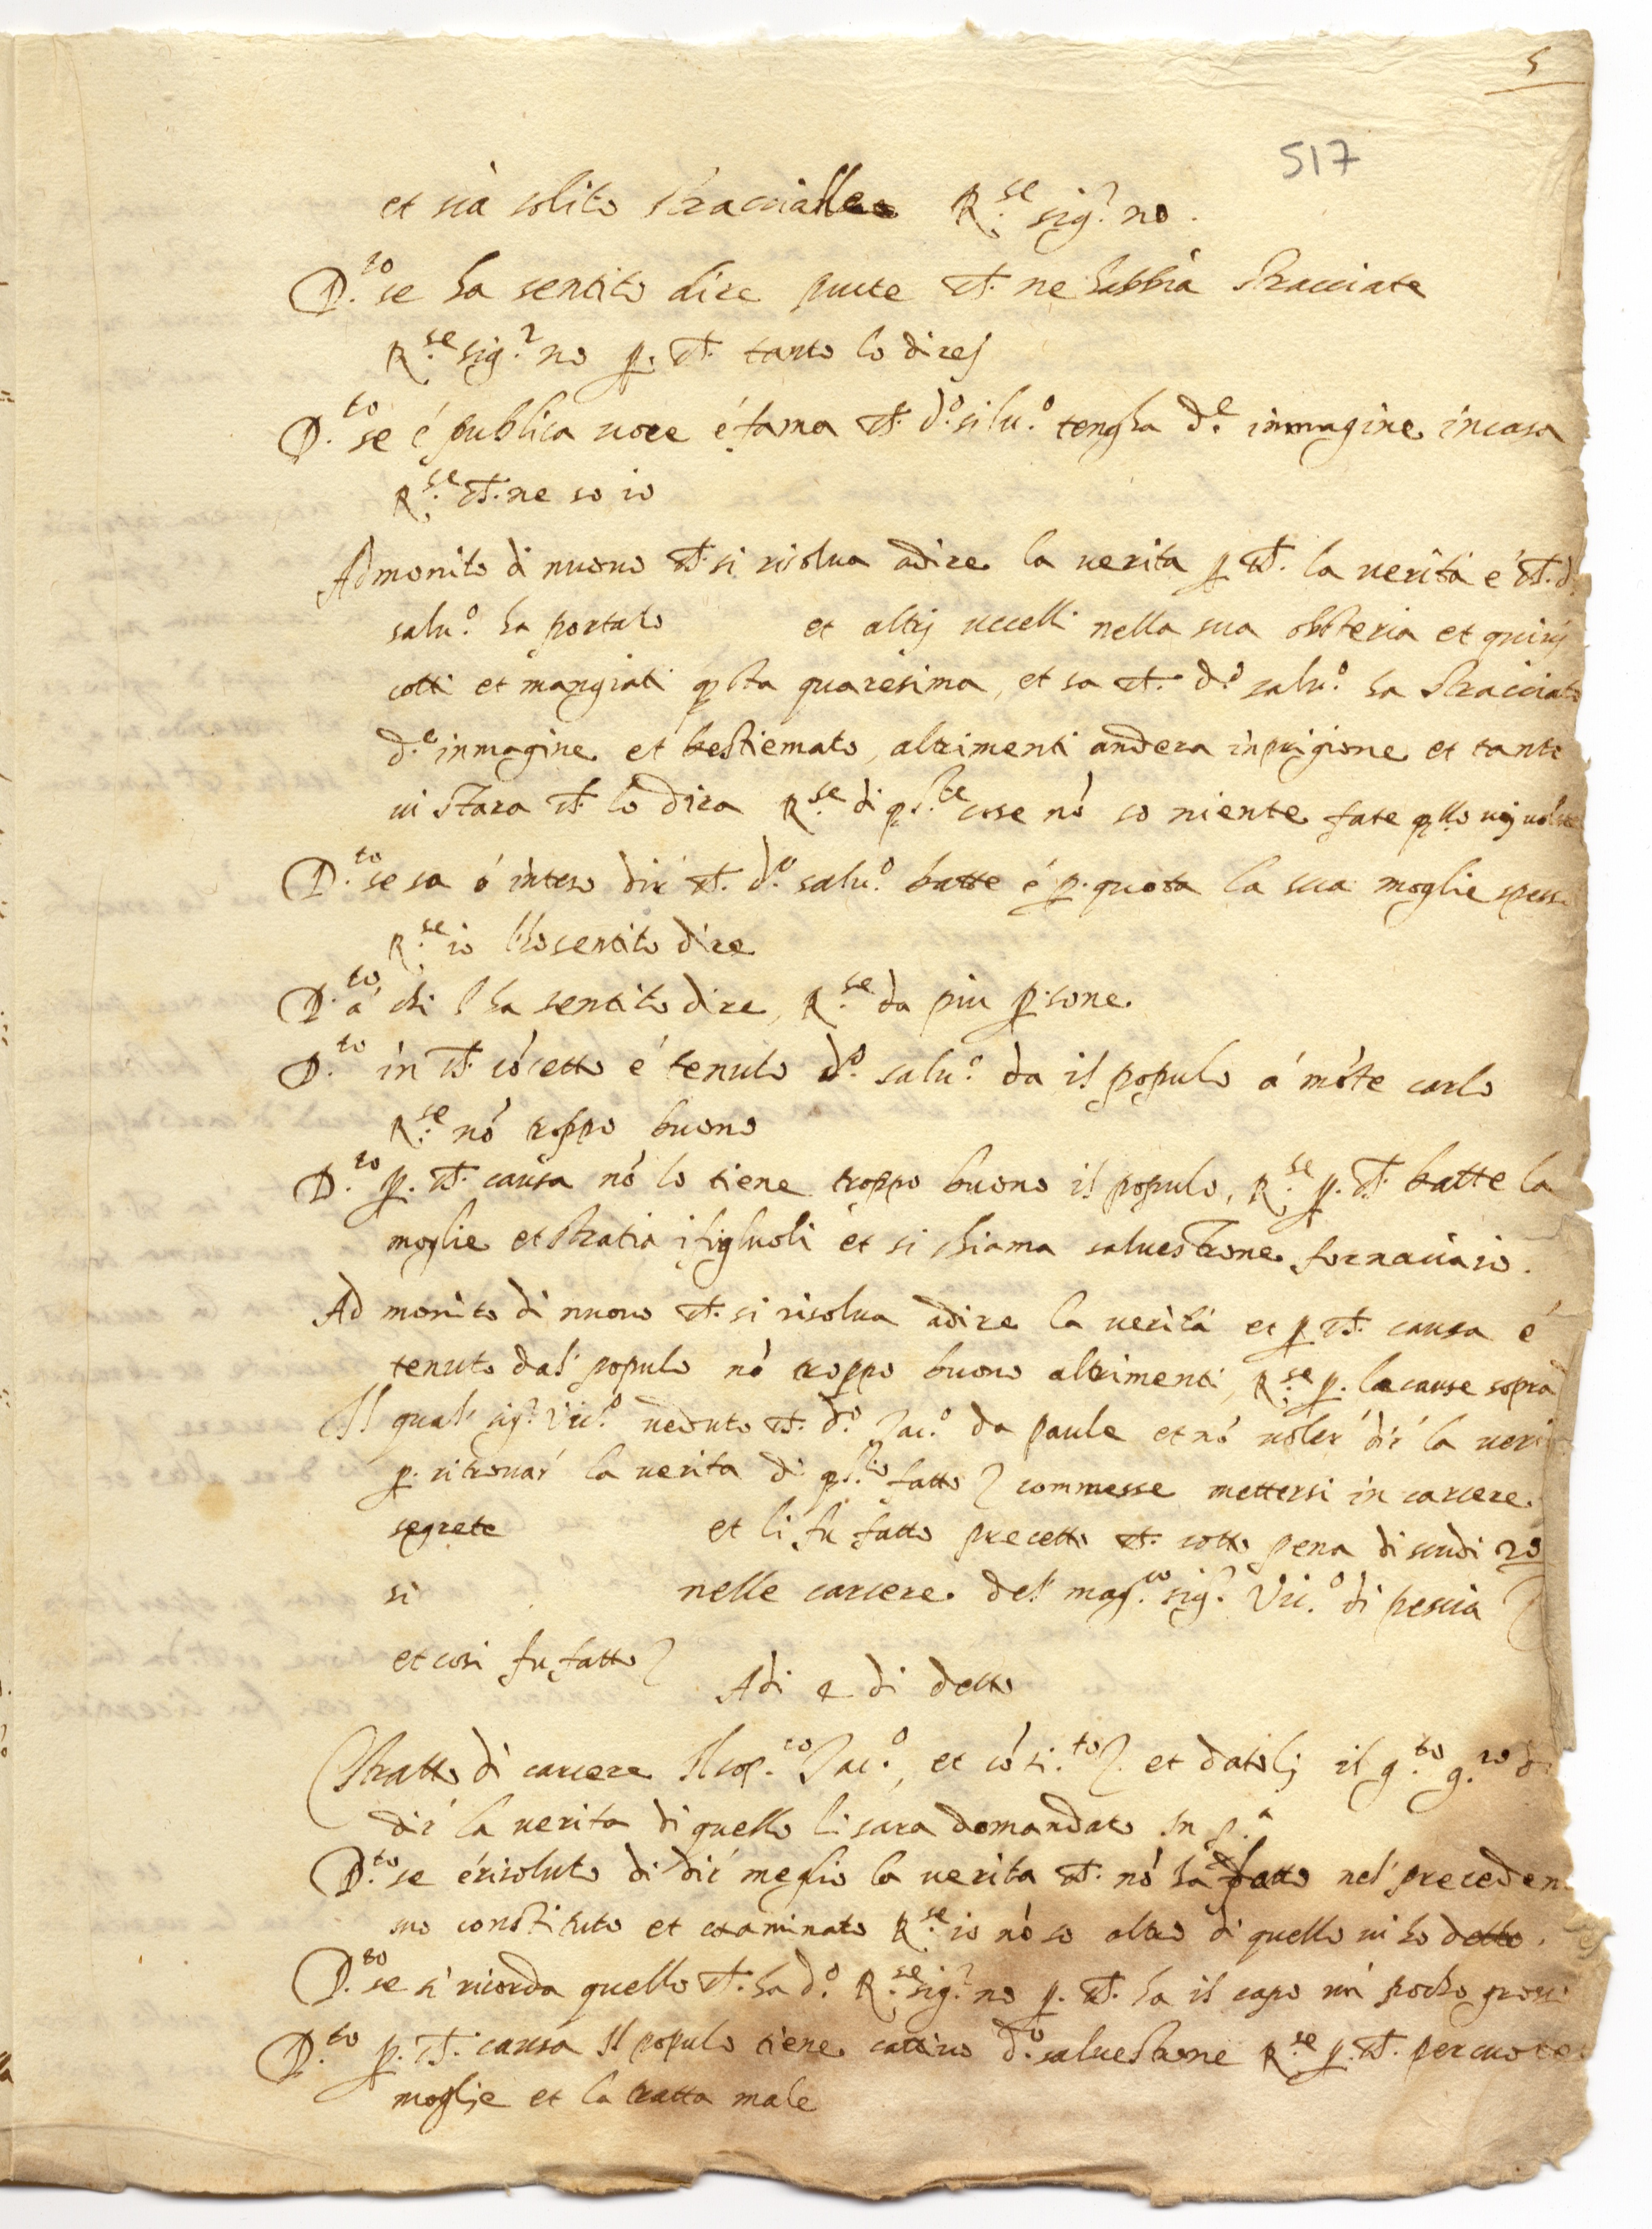 5
517
et sia solito straccialle R.se sig.r no.
D.to se ha sentito dire pure ch. ne habbia stracciate
R.se sig.r no p. ch. tanto lo direj
D.to se é publica voce é fama ch. d.o silu.o tengha d.e inmagine in casa
R.se ch. ne so io
Admonito di nuovo ch. si risolua adire la uerita p ch. la uerità é ch. d.
salu.o ha portato et altrj uccelli nella sua ossteria et quiuj
cotti et mangiati q.sta quaresima, et sa ch. d.o salu.o ha stracciato
d.e inmagine et bestiemato, altrimenti andera in prigione et tanto
ui stara ch. lo dira R.se di q.ste cose nó so niente fate q.llo uoj uolete
D.to se sa ó inteso dir' ch. d.o salu.o batte é p.quota la sua moglie spess
R.se io l'ho sentito dire
D.to á chi l'ha sentito dire, R.se da piu p.sone
D.to in ch. cócetto é tenuto d.o salu.o da il populo á móte carlo
R.se nó troppo buono
D.to p. ch. causa nó lo tiene troppo buono il populo, R.se p. ch. batte la
moglie et stratia i figluoli et si chiama saluestrone fornaciaio.
Ad monito di nuovo ch. si risolua adire la uerità et p ch. causa é
tenuto dal' populo nó troppo buono altrimenti, R.se p. le cause sopra
Il qual' sig.r Vic.o ueduto ch. d.o Jac.o da paule et nó uoler' dir' la ueri
p. ritrouar' la uerita di q.sto fatto commesse mettersi in carcere
segrete et li fu fatto precetto ch. sotto pena di scudi 20
si nelle carcere del' mag.co sig.r Vic.o di pescia
et cosi fu fatto
Adi 2 di detto
Stratto di carcere Il sop.to Jac.o, et cósti.to et datolj il g.to g.ro di
dir' la uerita di quello li sara domandato In p.a
D.to se é risoluto di dir' meglio la uerita ch. nó ha fatto nel' preceden
suo constituto et examinato R.se io nó so altro di quello ui ho detto.
D.to se si ricorda quello ch. ha d.o R.se sig.r no p. ch. ha il capo un pocho gross
D.to p. ch. causa Il populo tiene cattiuo d.o saluestrone R.se p. ch. percuote
moglie et la tratta male